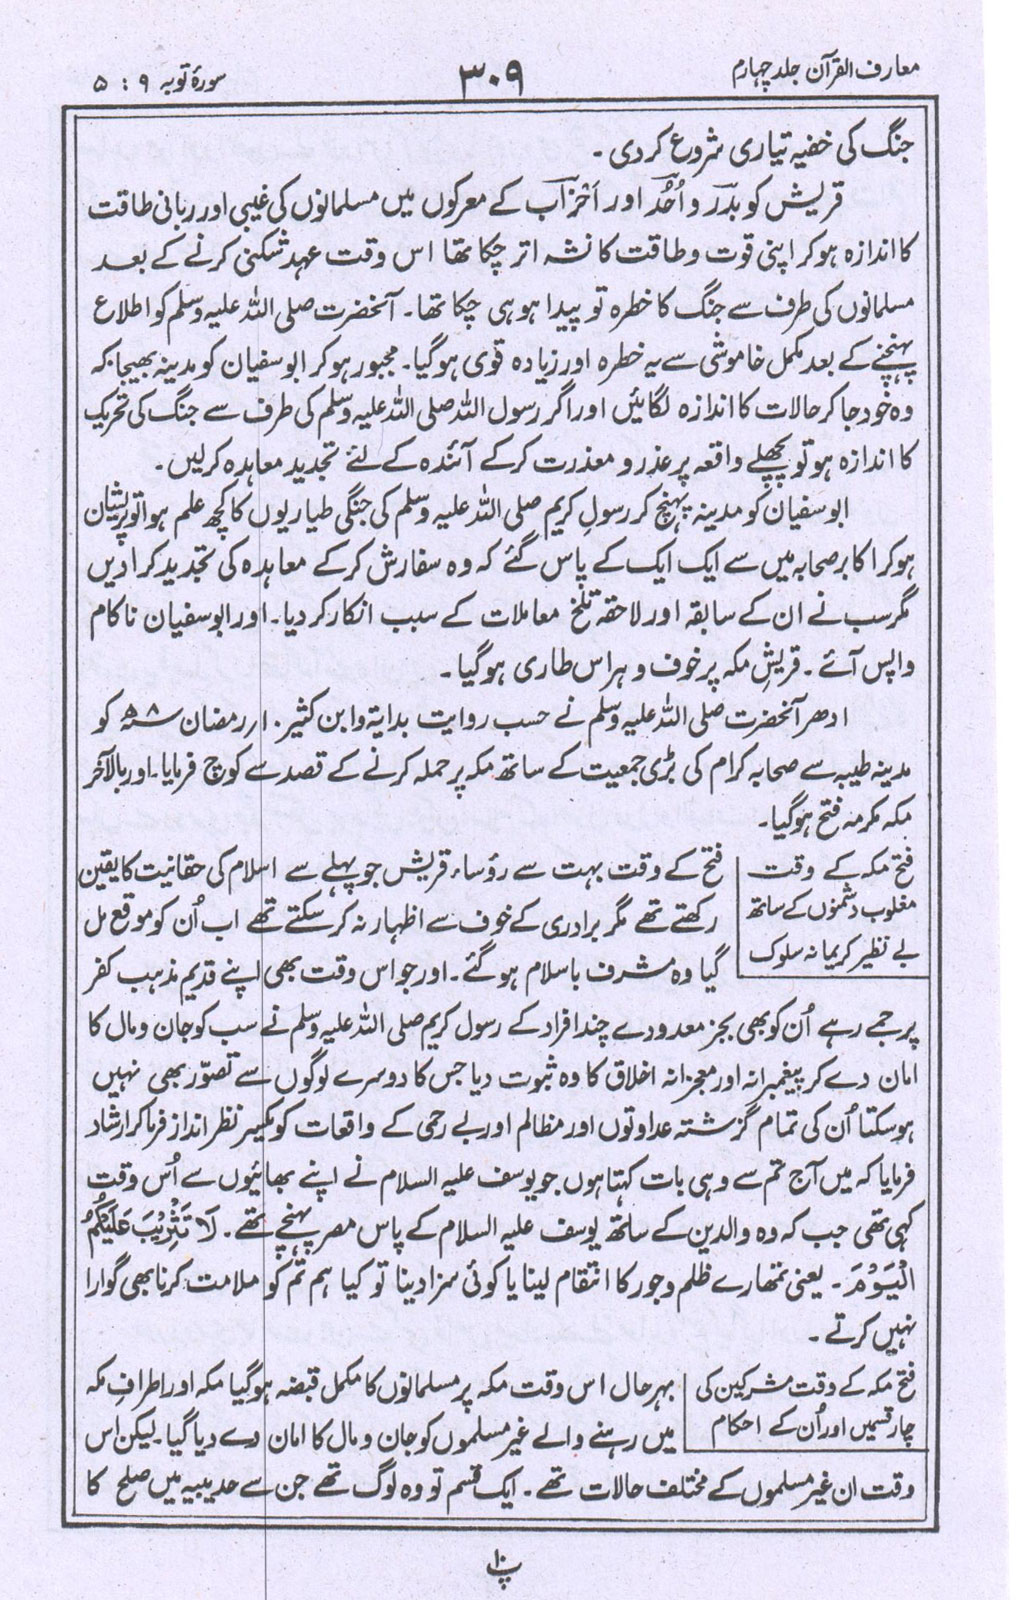 معارف القرآن جلد چہارم
۳۰۹
سورۂ توبہ ۹ : ۵
جنگ کی خفیہ تیاری شروع کر دی ۔
قریش کو بدر و اُحُد اور اَحْزَاب کے معرکوں میں مسلمانوں کی غیبی اور ربانی طاقت
کا اندازہ ہو کر اپنی قوت و طاقت کا نشہ اتر چکا تھا اس وقت عہد شکنی کرنے کے بعد
مسلمانوں کی طرف سے جنگ کا خطرہ تو پیدا ہو ہی چکا تھا۔ آنحضرت صلی اللہ علیہ وسلم کو اطلاع
پہنچنے کے بعد مکمل خاموشی سے یہ خطرہ اور زیادہ قوی ہو گیا۔ مجبور ہو کر ابو سفیان کو مدینہ بھیجا کہ
وہ خود جا کر حالات کا اندازہ لگائیں اور اگر رسول اللہ صلی اللہ علیہ وسلم کی طرف سے جنگ کی تحریک
کا اندازہ ہو تو پچھلے واقعہ پر عذر و معذرت کر کے آئندہ کے لئے تجدید معاہدہ کر لیں ۔
ابو سفیان کو مدینہ پہنچ کر رسولِ کریم صلی اللہ علیہ وسلم کی جنگی طیاریوں کا کچھ علم ہوا تو پریشان
ہو کر اکابر صحابہ میں سے ایک ایک کے پاس گئے کہ وہ سفارش کر کے معاہدہ کی تجدید کرا دیں
مگر سب نے ان کے سابقہ اور لاحقہ تلخ معاملات کے سبب انکار کر دیا۔ اور ابو سفیان ناکام
واپس آئے ۔ قریشِ مکہ پر خوف و ہراس طاری ہو گیا ۔
ادھر آنحضرت صلی اللہ علیہ وسلم نے حسب روایت بدایۃ و ابن کثیر ۱۰ رمضان ۸ھ کو
مدینہ طیبہ سے صحابہ کرام کی بڑی جمعیت کے ساتھ مکہ پر حملہ کرنے کے قصد سے کوچ فرمایا۔ اور بالآخر
مکہ مکرمہ فتح ہو گیا۔
فتح مکہ کے وقت
مغلوب دشمنوں کے ساتھ
بے نظیر کریمانہ سلوک
فتح کے وقت بہت سے رؤساء قریش جو پہلے سے اسلام کی حقانیت کا یقین
رکھتے تھے مگر برادری کے خوف سے اظہار نہ کر سکتے تھے اب اُن کو موقع مل
گیا وہ مشرف باسلام ہو گئے ۔ اور جو اس وقت بھی اپنے قدیم مذہب کفر
پر جمے رہے اُن کو بھی بجز معدودے چند افراد کے رسول کریم صلی اللہ علیہ وسلم نے سب کو جان و مال کا
امان دے کر پیغمبرانہ اور معجزانہ اخلاق کا وہ ثبوت دیا جس کا دوسرے لوگوں سے تصوّر بھی نہیں
ہو سکتا اُن کی تمام گزشتہ عداوتوں اور مظالم اور بے رحمی کے واقعات کو یکسر نظر انداز فرما کر ارشاد
فرمایا کہ میں آج تم سے وہی بات کہتا ہوں جو یوسف علیہ السلام نے اپنے بھائیوں سے اُس وقت
کہی تھی جب کہ وہ والدین کے ساتھ یوسف علیہ السلام کے پاس مصر پہنچے تھے ۔ لَا تَثْرِیْبَ عَلَیْکُمُ
الْیَوْمَ ۔ یعنی تمھارے ظلم و جور کا انتقام لینا یا کوئی سزا دینا تو کیا ہم تم کو ملامت کرنا بھی گوارا
نہیں کرتے ۔
فتح مکہ کے وقت مشرکین کی
چار قسمیں اور اُن کے احکام
بہر حال اس وقت مکہ پر مسلمانوں کا مکمل قبضہ ہو گیا مکہ اور اطرافِ مکہ
میں رہنے والے غیر مسلموں کو جان و مال کا امان دے دیا گیا۔ لیکن اس
وقت ان غیر مسلموں کے مختلف حالات تھے ۔ ایک قسم تو وہ لوگ تھے جن سے حدیبیہ میں صلح کا
پ ۱۰